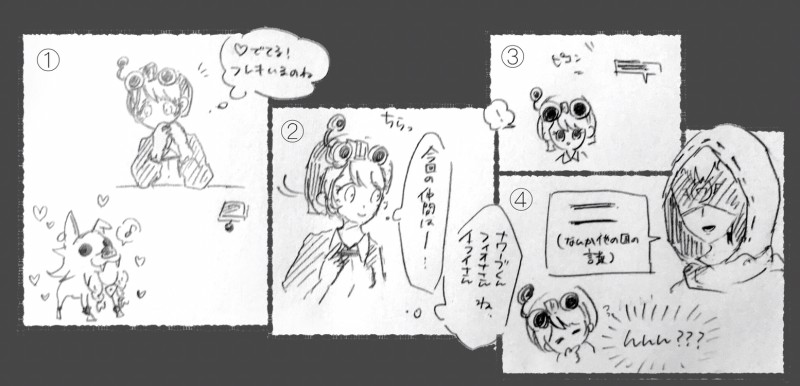 ①
♡でてる!
フレキいるのね
②
ちらっ
今回の仲間は—…
ナワーブくん
フィオナさん
イライさん
ね、
③
ピコン
!
④
(なんか他の国の
言葉)
んんん???